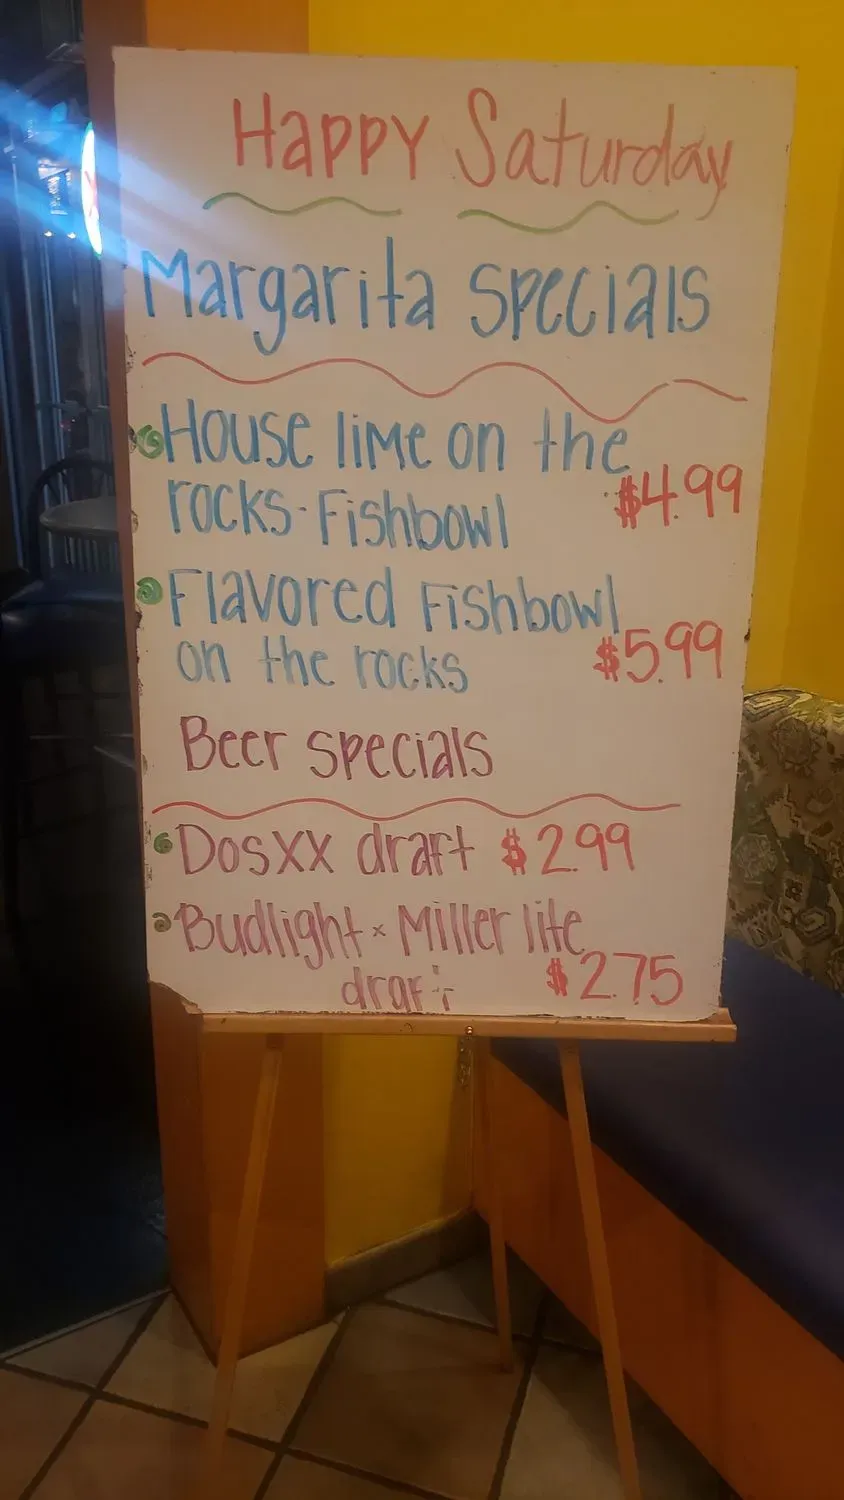 Happy Saturday
Margarita Specials
House lime on the
rocks-Fishbowl $4.99
Flavored Fishbowl
on the rocks $5.99
Beer specials
Dosxx draft $2.99
Budlight x Miller lite
draft $2.75